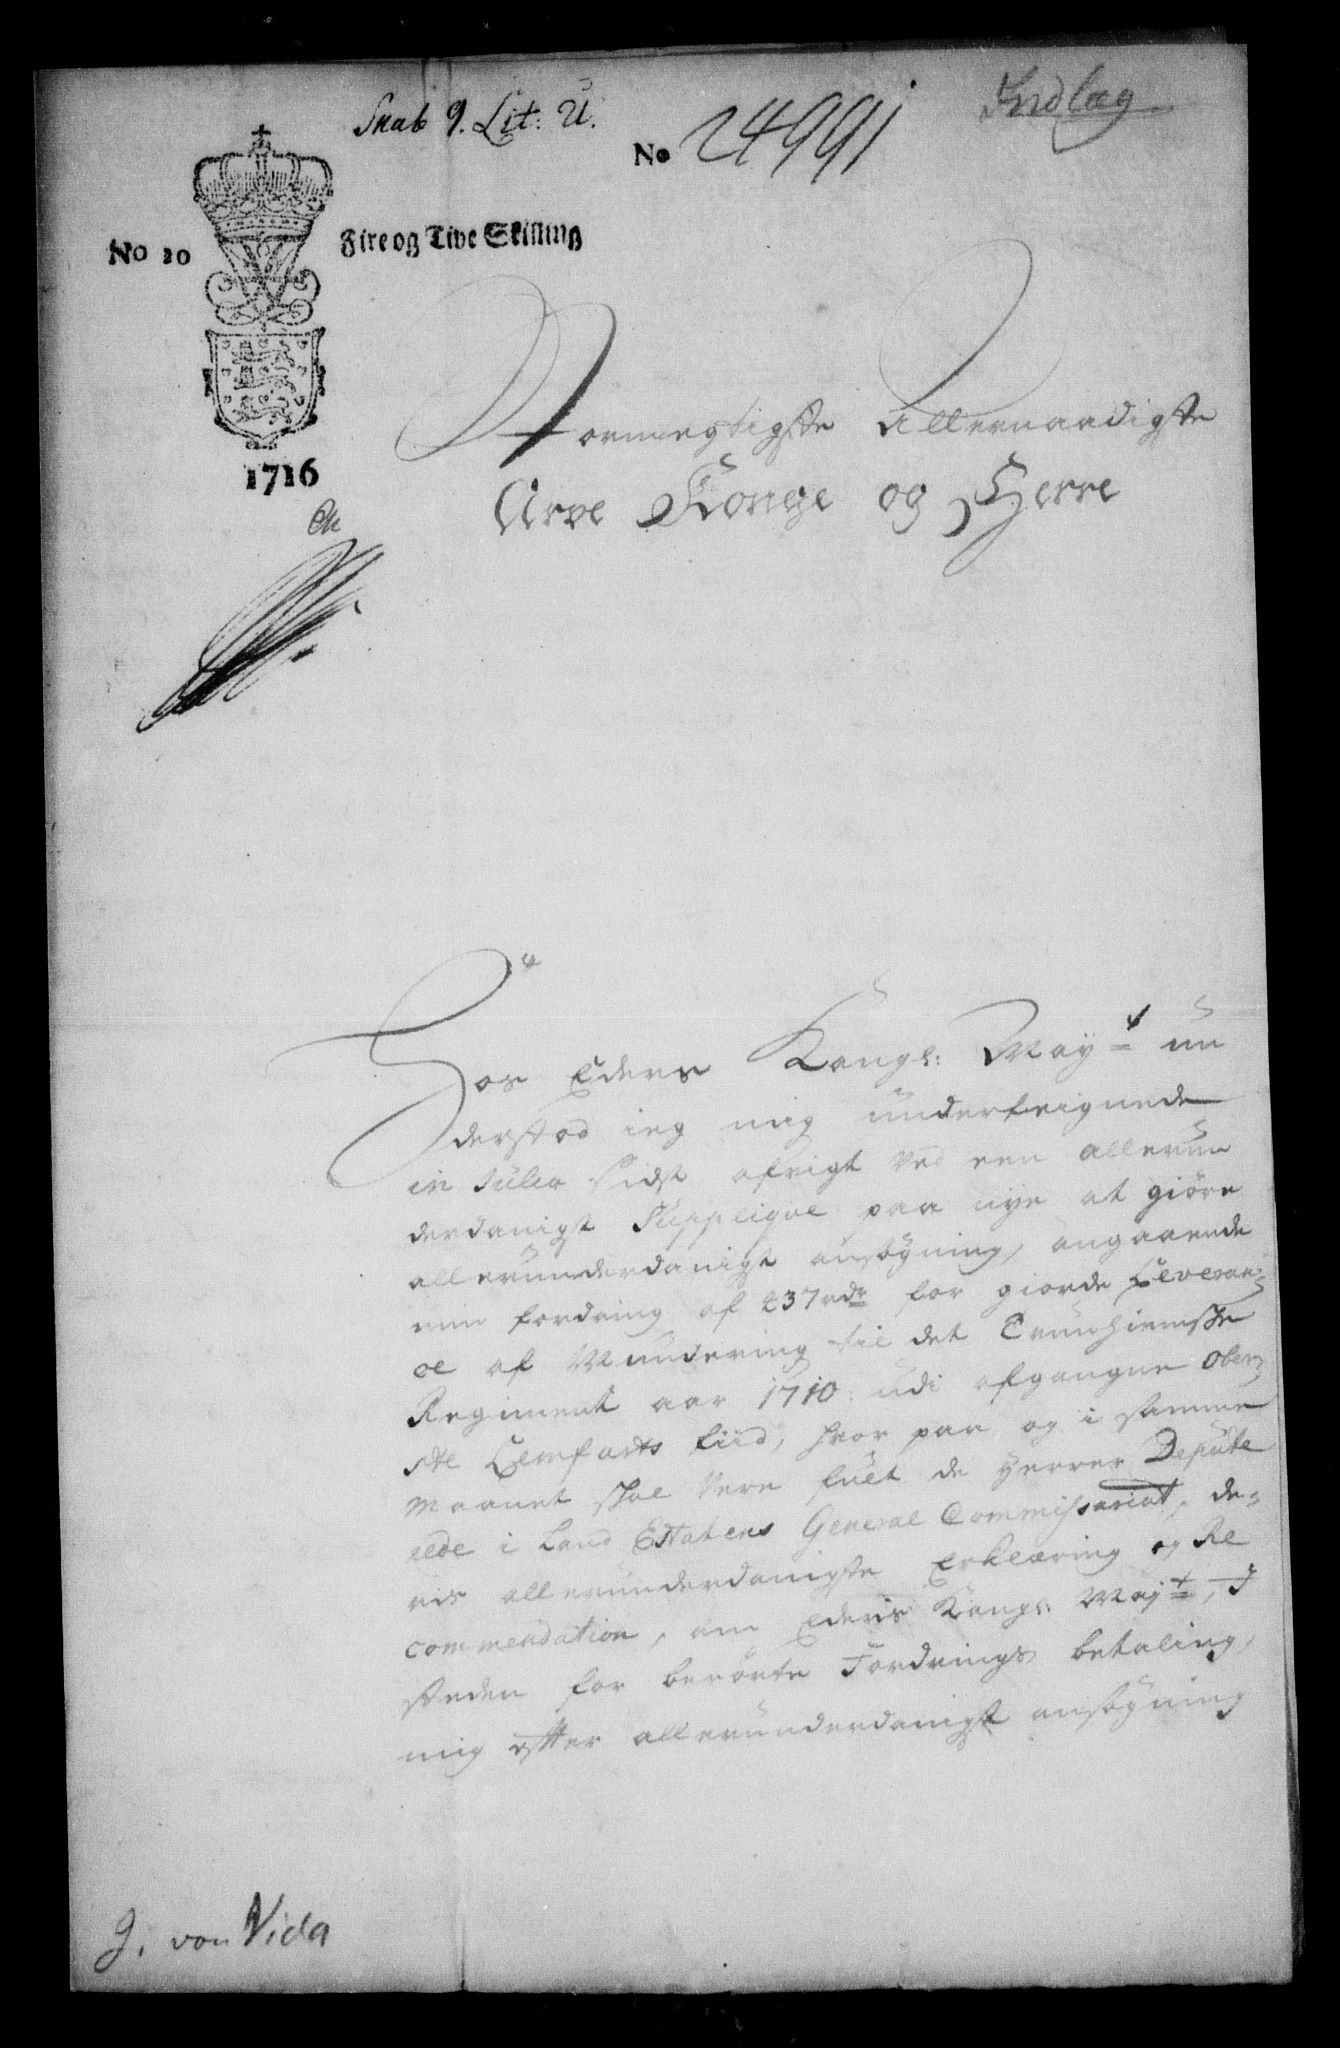 Skab 9. Lit: U.
Indlæg
No 24991
No 20
Fire og Tive Skilling
1716
Stormegtigste Allernaadigste
Arve Konge og Herre
Hos Eders Kongl: May:t un
derstod ieg mig underteignede
in Julio sidst afvigt ved een allerun
derdanigst Supplique paa nye at giøre
allerunderdanigst ansøgning, angaaende
min fordring af 237 rdr for giorde Leveran-
ce af Mundering til det Trunhiemske
Regiment aar 1710: udi afgangne Ober-
ste Lemforts tiid, hvor paa og i samme
Maanet skal vere fult de Herrer Depute
rede i Land Estatens General Commissariat, de-
ris allerunderdanigste Erklæring og Re
commendation, om Eders Kongl: May:t, I
steden for berørte Fordrings betaling,
mig efter allerunderdanigst ansøgning
J. von Vida